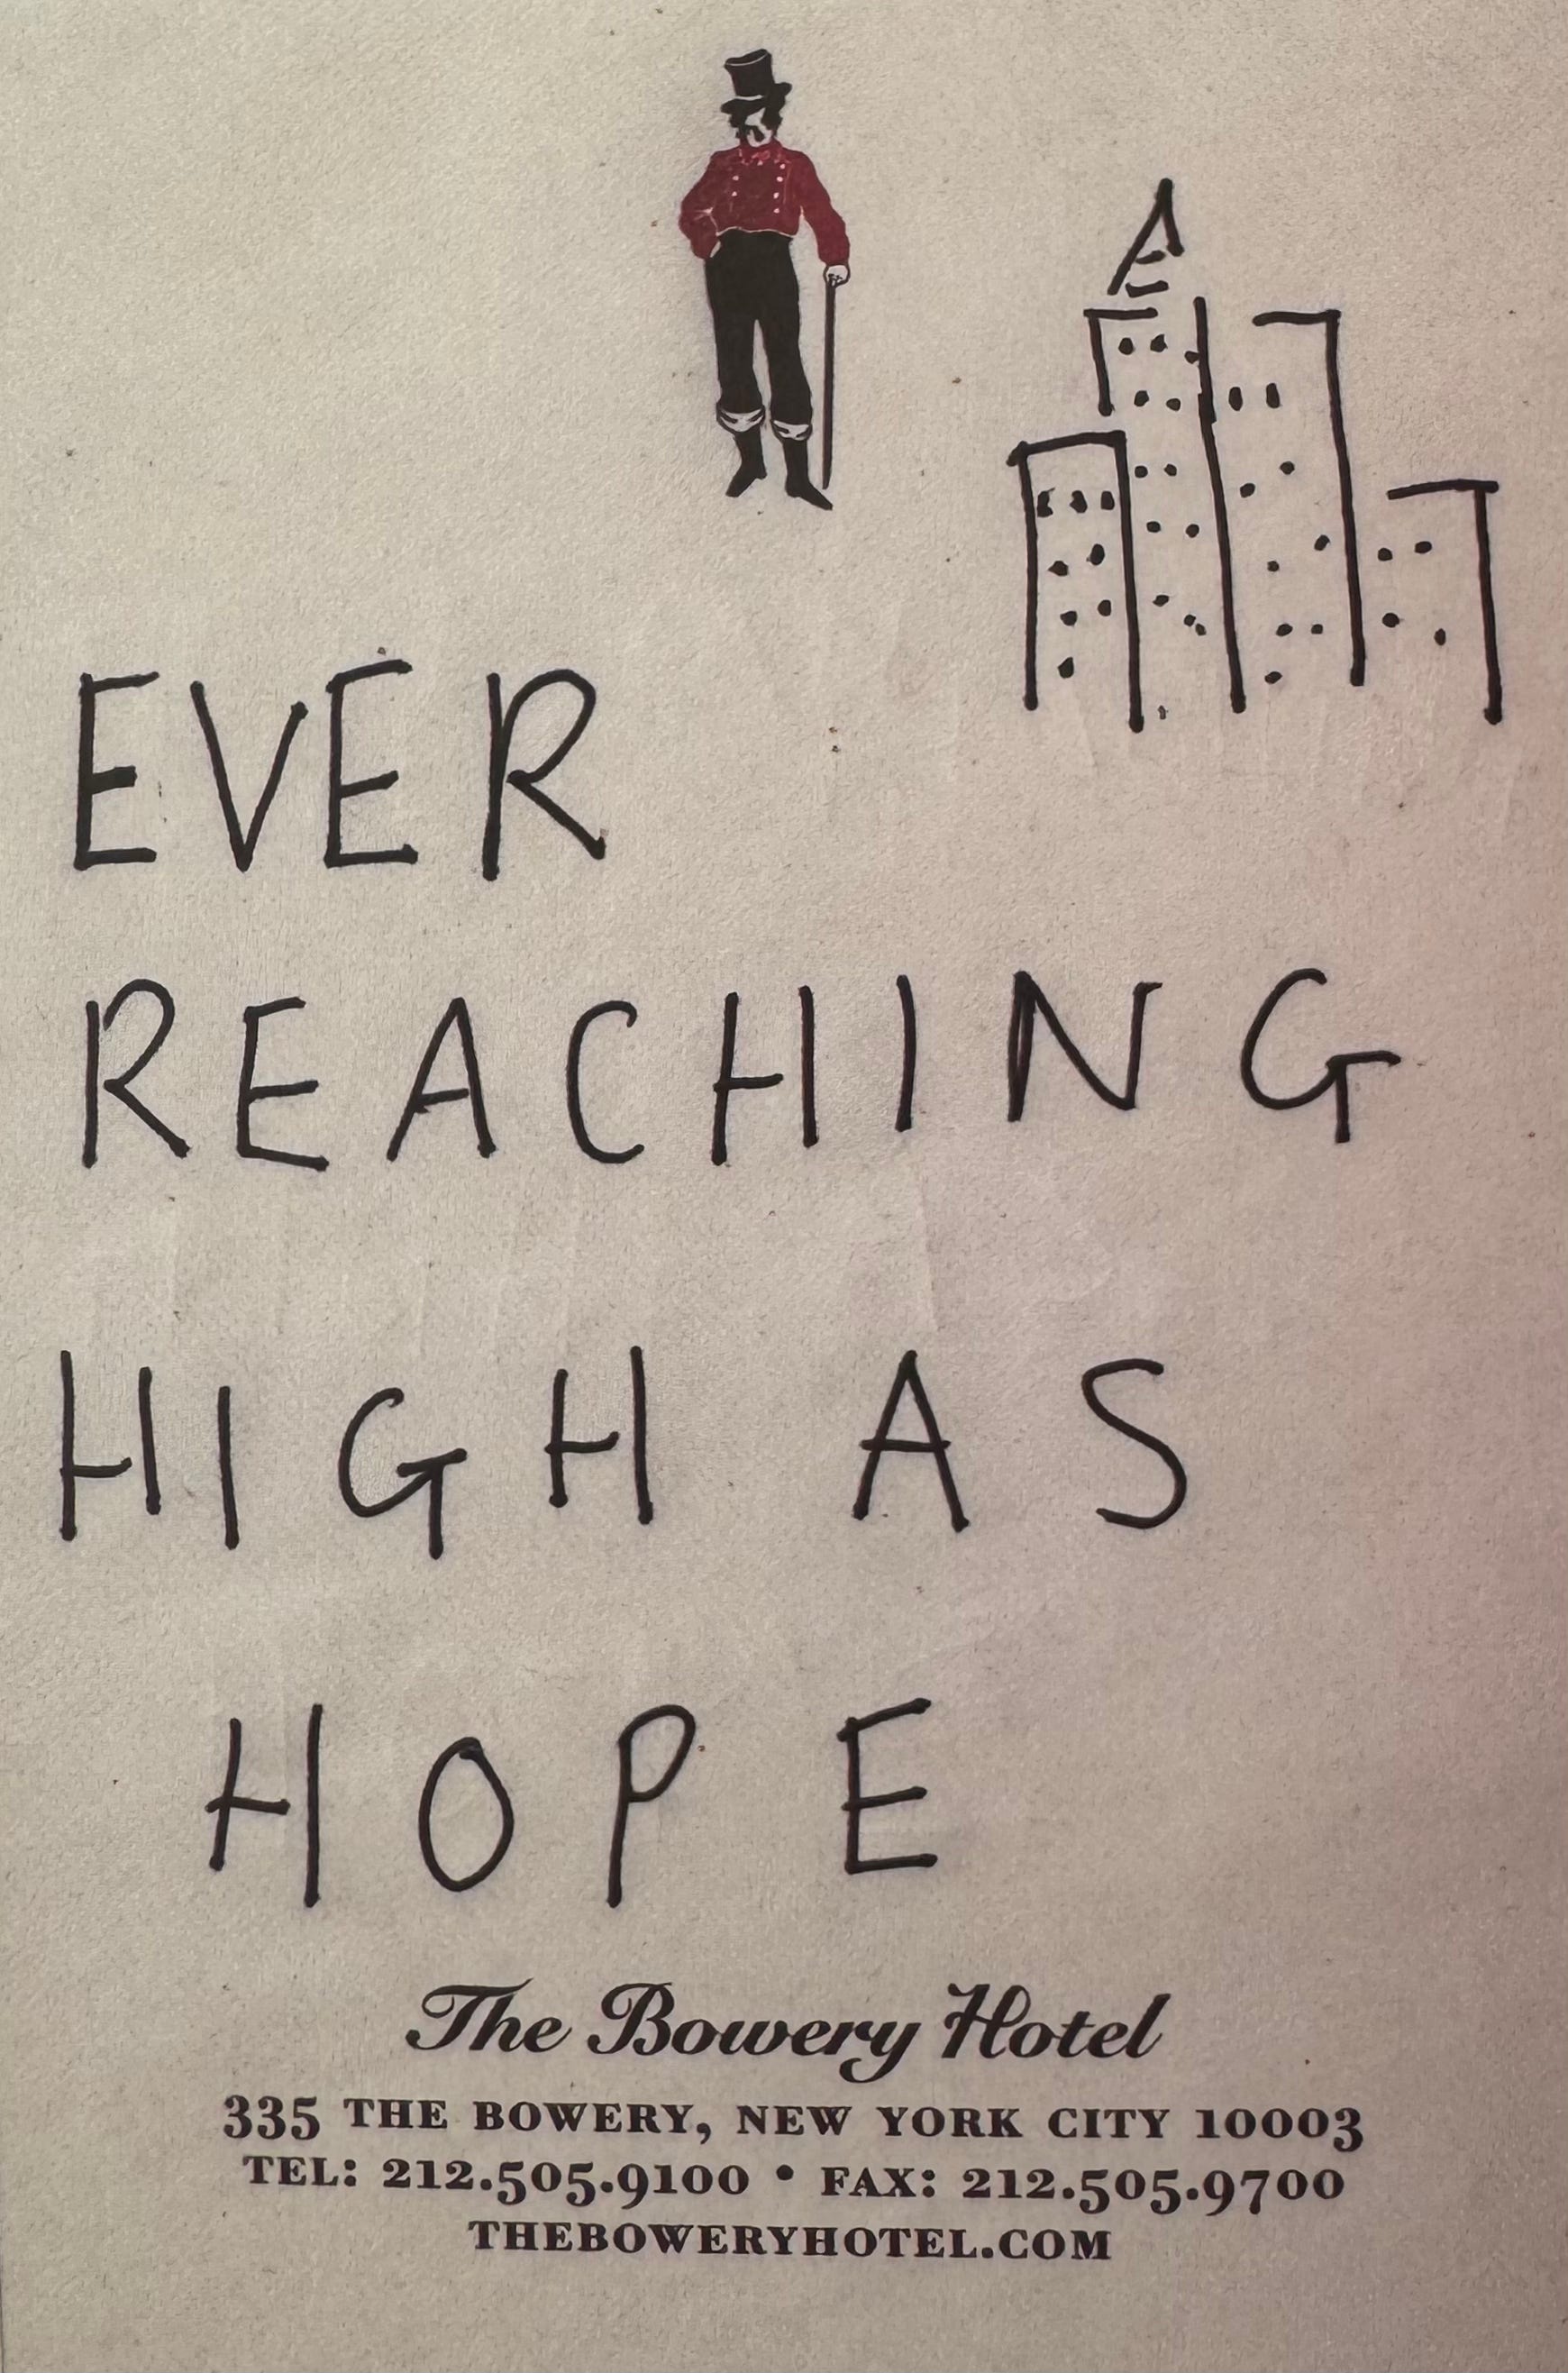 EVER
REACHING
HIGH AS
HOPE
The Bowery Hotel
335 THE BOWERY, NEW YORK CITY 10003
TEL: 212.505.9100 • FAX: 212.505.9700
THEBOWERYHOTEL.COM